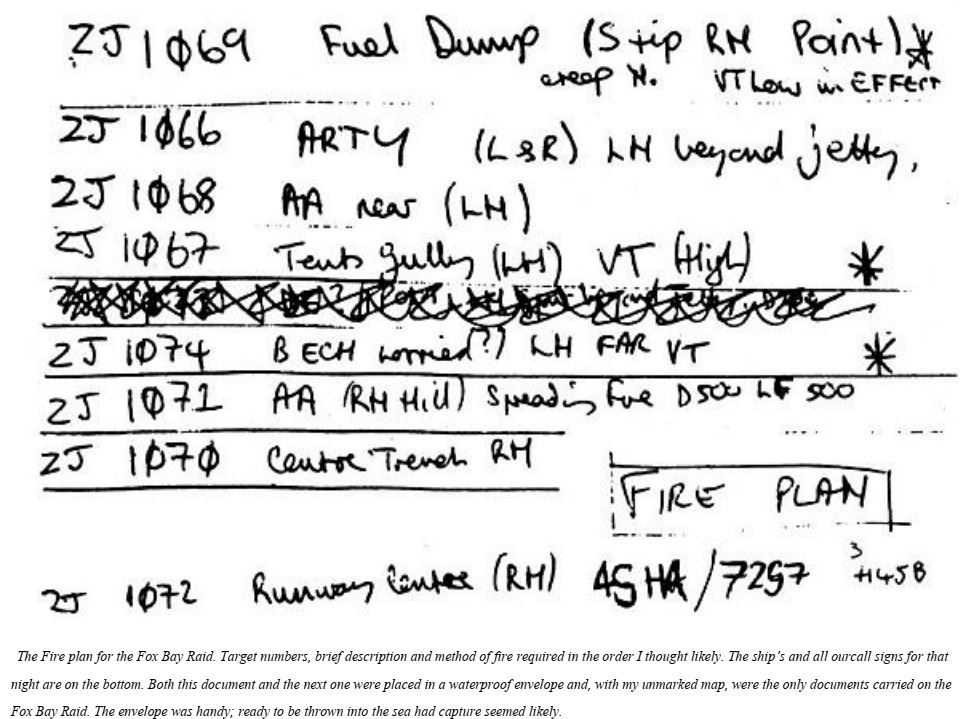 ZJ 1069 Fuel Dump (Stip RM Point)*
creep N. VT Low in EFFect
ZJ 1066 ARTY (L&R) LH beyond jetty,
ZJ 1068 AA near (LH)
ZJ 1067 Tents gulley (LH) VT (High) *
ZJ 1074 BECH worried(?) LH FAR VT *
ZJ 1071 AA (RM Hill) Spreading Fire D500 500
ZJ 1070 Centre Trench RM
FIRE PLAN
ZJ 1072 Runway Centre (RH) 4SHA/7257
The Fire plan for the Fox Bay Raid. Target numbers, brief description and method of fire required in the order I thought likely. The ship's and all ourcall signs for that
night are on the bottom. Both this document and the next one were placed in a waterproof envelope and, with my unmarked map, were the only documents carried on the
Fox Bay Raid. The envelope was handy; ready to be thrown into the sea had capture seemed likely.